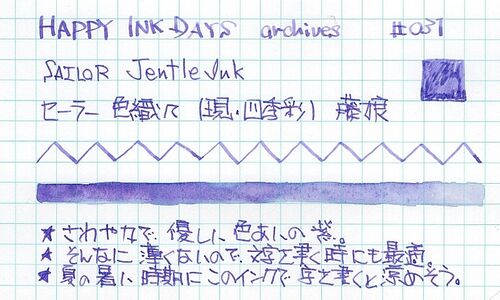 HAPPY INK DAYS archives #031
SAILOR Jentle Ink
セーラー 色織々 (現・四季彩) 藤娘
★ さわやかで、優しい色あいの紫。
★ そんなに薄くないので、文字を書く時にも最適。
★ 夏の暑い時期にこのインクで字を書くと涼めそう。